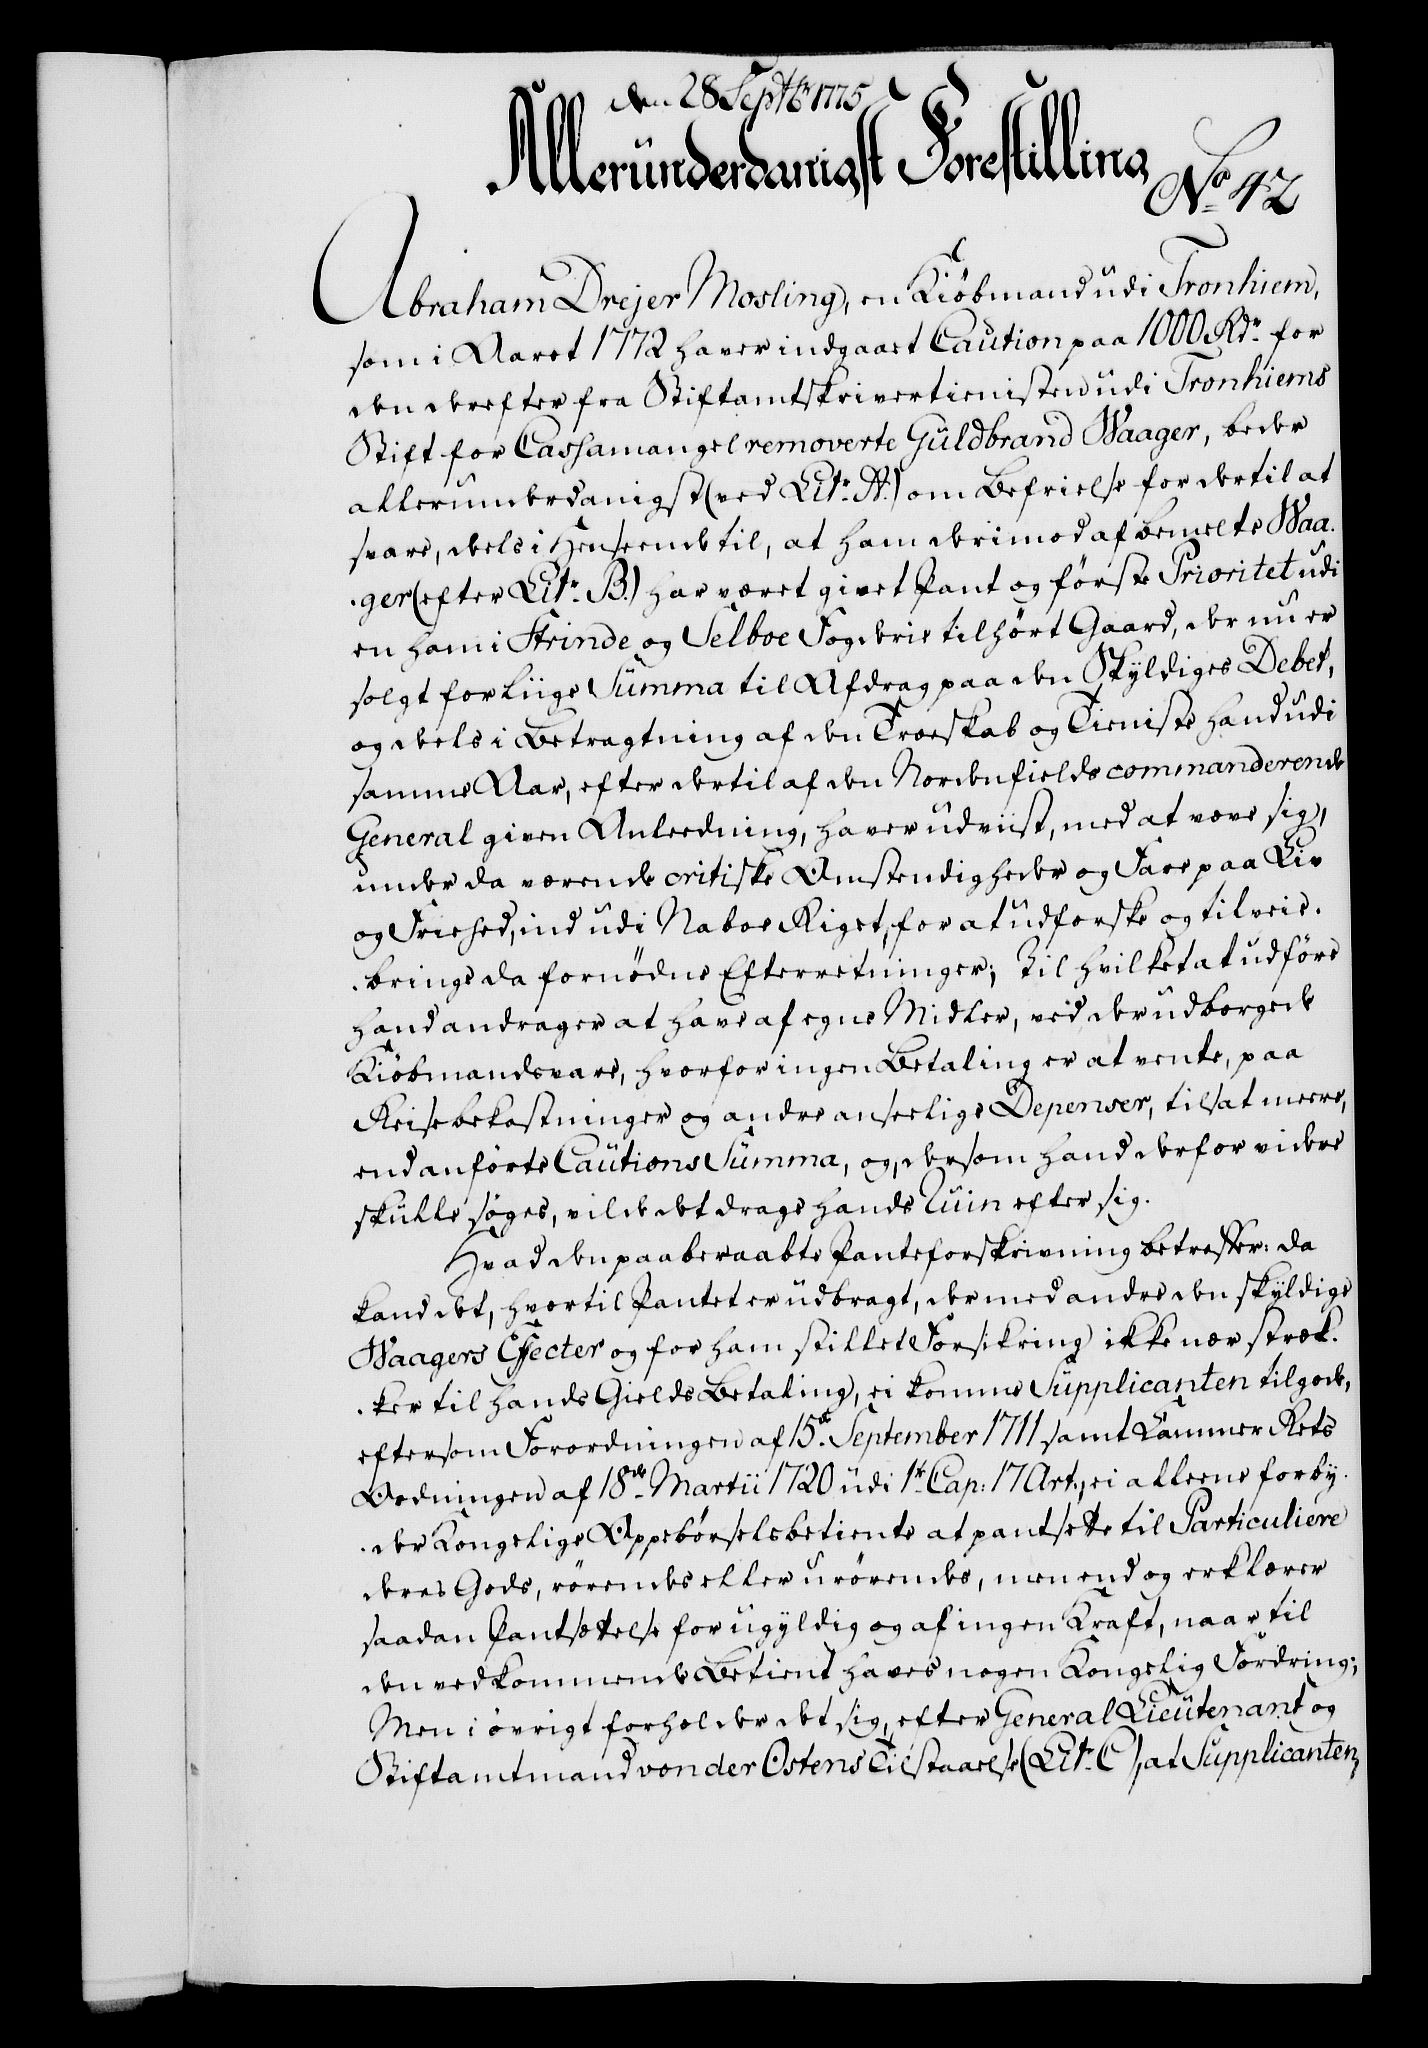 den 28 Septbr 1775
Allerunderdanigst Forestilling
No 42
Abraham Drejer Mosling, en Kiøbmand udi Tronhiem,
som i Aaret 1772 haver indgaaet Caution paa 1000 Rdr. for
den derefter fra Stiftamtskrivertienisten udi Tronhiems
Stift for Cassamangel removerte Guldbrand Waager, beder
allerunderdanigst (ved Litr. A.) om Befrielse for dertil at
svare, deels i Henseende til, at ham derimod af bemelte Waa-
-ger (efter Litr. B.) har været givet Pant og første Prioritet udi
en ham i Strinde og Selboe Fogderie tilhørt Gaard, der nu er
solgt for liige Summa til Afdrag paa den Skyldiges Debet,
og deels i Betragtning af den Troeskab og Tieniste hand udi
samme Aar, efter dertil af den Nordenfields commanderende
General given Anleedning, haver udviist, med at vove sig,
under da værende critiske Omstendigheder og Fare paa Liv
og Friehed, ind udi Naboe Riget, for at udforske og tilveie-
-bringe da fornødne Efterretninger; Til hvilket at udføre
hand andrager at have af egne Midler, ved der udborgede
Kiøbmandsvare, hvorfor ingen Betaling er at vente, paa
Reisebekostninger og andre anseelige Depenser, tilsat meere,
end anførte Cautions Summa, og, dersom hand derfor videre
skulle søges, vilde det drage hands Ruin efter sig.
Hvad den paaberaabte Panteforskrivning betreffer: da
kand det, hvortil Pantet er udbragt, der med andre den skyldige
Waagers Effecter og for ham stillet Forsikring ikke nær stræk-
-ker til hands Gields Betaling, ei komme Supplicanten tilgode,
eftersom Forordningen af 15de September 1711 samt Kammer Rets
Ordningen af 18de Martii 1720 udi 1te Cap: 17 Art:, ei alleene forby-
-der Kongelige Oppebørselsbetiente at pantsette til Particuliere
deres Gods, rørendes eller urørendes, men end og erklærer
saadan Pantsættelse for ugyldig og af ingen Kraft, naar til
den vedkommende Betient haves nogen Kongelig Fordring;
Men i øvrigt forholder det sig, efter General Lieutenant og
Stiftamtmand von der Ostens Tilstaaelse (Litr. C), at Supplicanten,